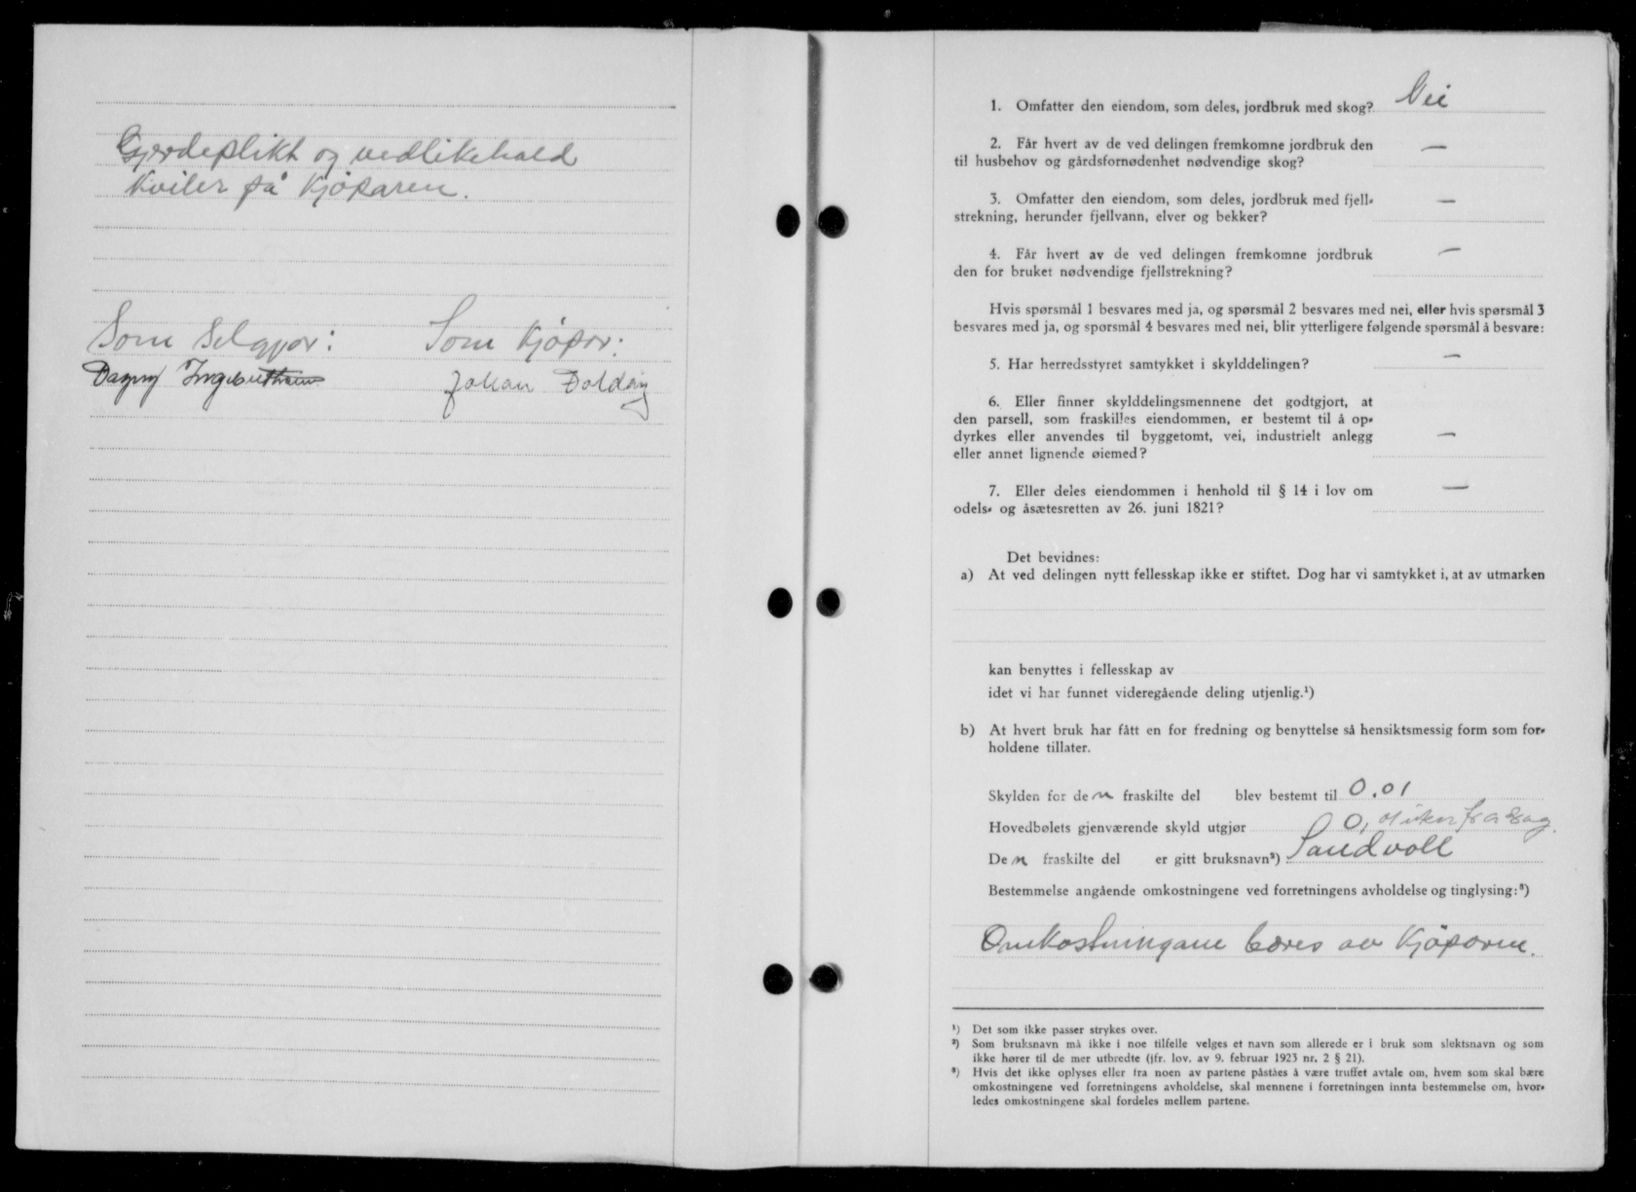 Gjerdeplikt og vedlikehald
kviler på kjöparen.
Som Selgjar: Som kjöpar:
Dagny Johan
1. Omfatter den eiendom, som deles, jordbruk med skog? Nei
2. Får hvert av de ved delingen fremkomne jordbruk den —
til husbehov og gårdsfornødenhet nødvendige skog?
3. Omfatter den eiendom, som deles, jordbruk med fjell- —
strekning, herunder fjellvann, elver og bekker?
4. Får hvert av de ved delingen fremkomne jordbruk —
den for bruket nødvendige fjellstrekning?
Hvis spørsmål 1 besvares med ja, og spørsmål 2 besvares med nei, eller hvis spørsmål 3
besvares med ja, og spørsmål 4 besvares med nei, blir ytterligere følgende spørsmål å besvare:
5. Har herredsstyret samtykket i skylddelingen? —
6. Eller finner skylddelingsmennene det godtgjort, at
den parsell, som fraskilles eiendommen, er bestemt til å op-
dyrkes eller anvendes til byggetomt, vei, industrielt anlegg —
eller annet lignende øiemed?
7. Eller deles eiendommen i henhold til § 14 i lov om —
odels- og åsætesretten av 26. juni 1821?
Det bevidnes:
a) At ved delingen nytt fellesskap ikke er stiftet. Dog har vi samtykket i, at av utmarken
kan benyttes i fellesskap av
idet vi har funnet videregående deling utjenlig.¹)
b) At hvert bruk har fått en for fredning og benyttelse så hensiktsmessig form som for-
holdene tillater.
Skylden for den fraskilte del blev bestemt til 0.01
Hovedbølets gjenværende skyld utgjør 0,
Den fraskilte del er gitt bruksnavn²) Sandvoll
Bestemmelse angående omkostningene ved forretningens avholdelse og tinglysing:³)
Omkostningane bæres av kjöparen.
¹) Det som ikke passer strykes over.
²) Som bruksnavn må ikke i noe tilfelle velges et navn som allerede er i bruk som slektsnavn og som
ikke hører til de mer utbredte (jfr. lov. av 9. februar 1923 nr. 2 § 21).
³) Hvis det ikke oplyses eller fra noen av partene påståes å være truffet avtale om, hvem som skal bære
omkostningene ved forretningens avholdelse, skal mennene i forretningen innta bestemmelse om, hvor-
ledes omkostningene skal fordeles mellem partene.